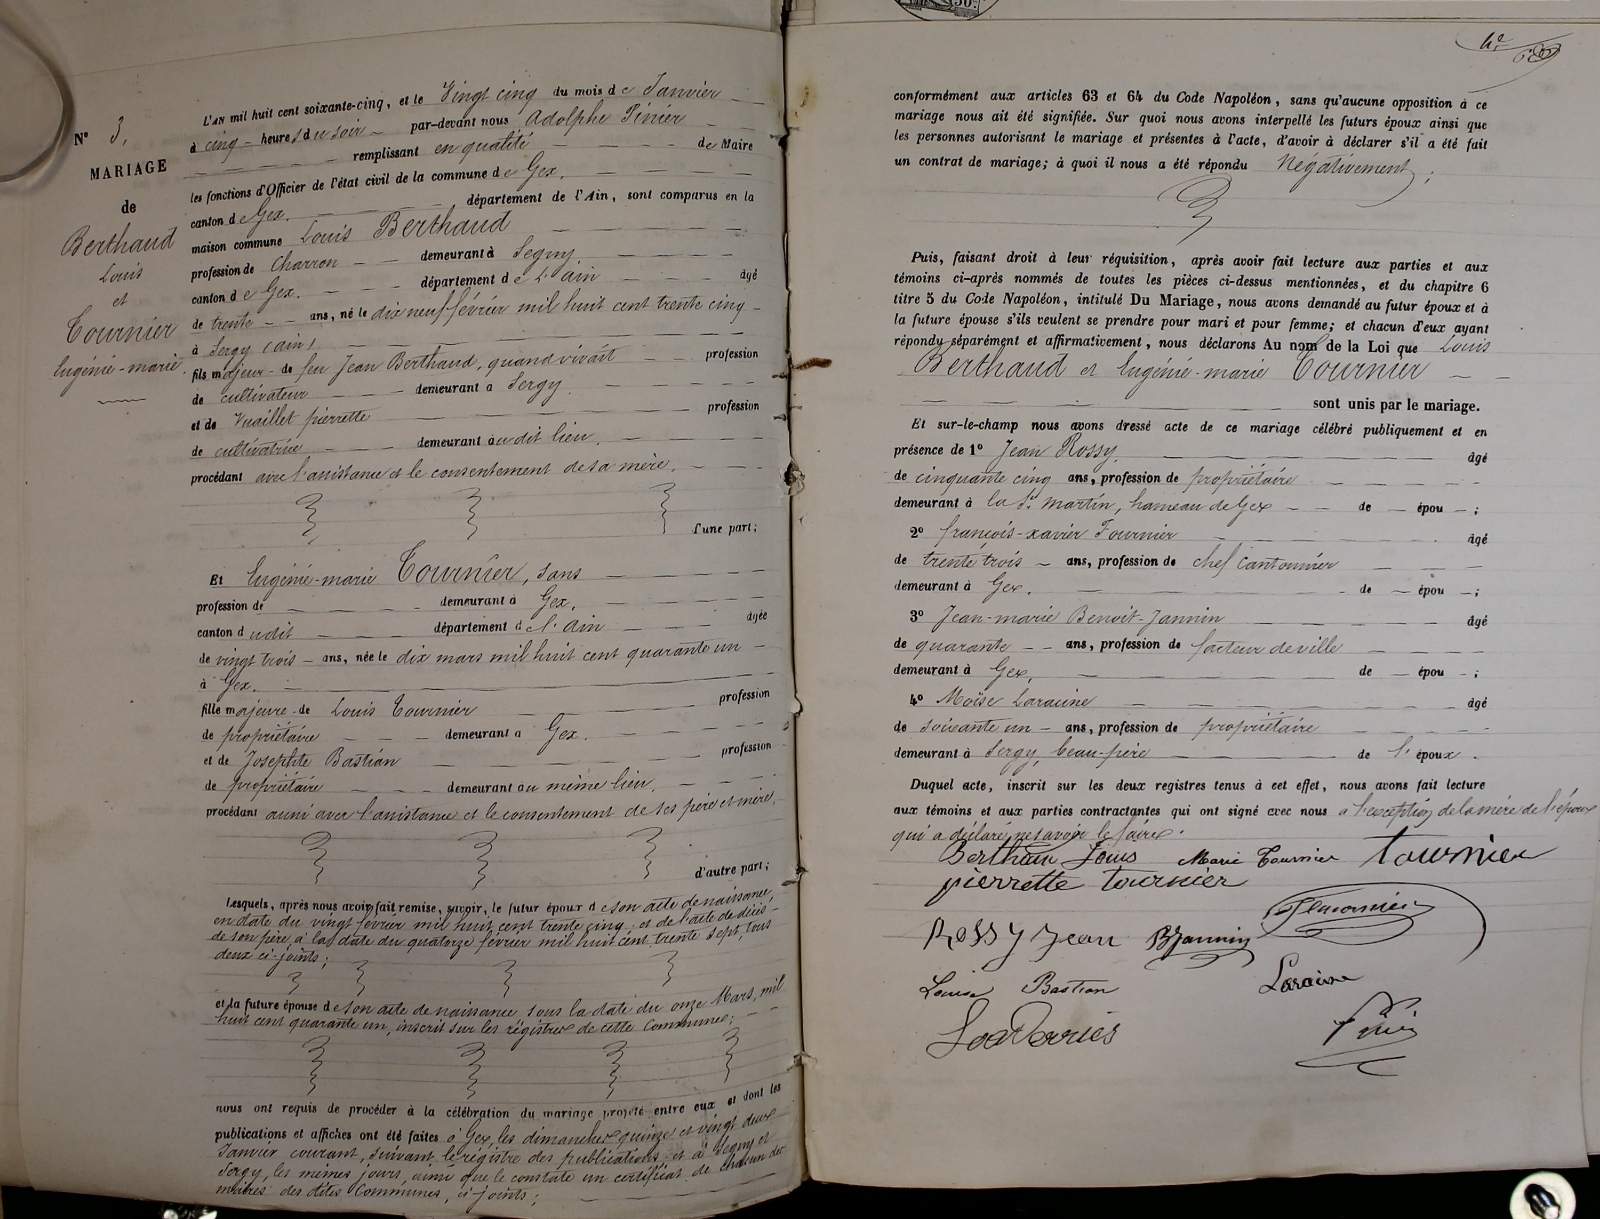 N° 3.
MARIAGE
de
Berthaud
Louis
et
Tournier
Eugénie-marie.
L'AN mil huit cent soixante-cinq, et le Vingt cinq du mois de Janvier
à cinq heures du soir par-devant nous Adolphe Pinier
remplissant en qualité de Maire
les fonctions d'Officier de l'état civil de la commune de Gex.
canton de Gex. département de l'Ain, sont comparus en la
maison commune Louis Berthaud
profession de Charron demeurant à Segny.
canton de Gex. département de L'ain âgé
de trente ans, né le dix neuf février mil huit cent trente cinq
à Sergy (ain)
fils majeur de feu Jean Berthaud, quand vivait profession
de cultivateur demeurant a Sergy.
et de Vuaillet pierrette profession
de cultivatrice demeurant audit lieu.
procédant avec l'assistance et le consentement de sa mère.
d'une part;
Et Eugénie-marie Tournier, sans
profession de demeurant à Gex.
canton dudit département de l'ain âgée
de vingt trois ans, née le dix mars mil huit cent quarante un
à Gex.
fille majeure de Louis Tournier profession
de propriétaire demeurant a Gex.
et de Josephte Bastian profession
de propriétaire demeurant au même lieu.
procédant aussi avec l'assistance et le consentement de ses père et mère.
d'autre part;
Lesquels, après nous avoir fait remise, savoir, le futur époux de son acte de naissance,
en date du vingt février mil huit cent trente cinq, et de l'acte de décès
de son père, à la date du quatorze février mil huit cent trente sept, tous
deux ci-joints;
et la future épouse de son acte de naissance sous la date du onze Mars, mil
huit cent quarante un, inscrit sur les régistres de cette Commune;
nous ont requis de procéder à la célébration du mariage projeté entre eux et dont les
publications et affiches ont été faites à Gex, les dimanches quinze et vingt deux
Janvier courant, suivant le régistre des publications et à Segny et
Sergy, les mêmes jours, ainsi que le constate un certificat de chacun des
maires des dites Communes, ci-joints;
conformément aux articles 63 et 64 du Code Napoléon, sans qu'aucune opposition à ce
mariage nous ait été signifiée. Sur quoi nous avons interpellé les futurs époux ainsi que
les personnes autorisant le mariage et présentes à l'acte, d'avoir à déclarer s'il a été fait
un contrat de mariage; à quoi il nous a été répondu Négativement;
Puis, faisant droit à leur réquisition, après avoir fait lecture aux parties et aux
témoins ci-après nommés de toutes les pièces ci-dessus mentionnées, et du chapitre 6
titre 5 du Code Napoléon, intitulé Du Mariage, nous avons demandé au futur époux et à
la future épouse s'ils veulent se prendre pour mari et pour femme; et chacun d'eux ayant
répondu séparément et affirmativement, nous déclarons Au nom de la Loi que Louis
Berthaud et Eugénie-marie Tournier
sont unis par le mariage.
Et sur-le-champ nous avons dressé acte de ce mariage célébré publiquement et en
présence de 1° Jean Rossy. âgé
de cinquante cinq ans, profession de propriétaire
demeurant à la St. Martin, hameau de Gex de épou ;
2° françois-xavier Fournier âgé
de trente trois ans, profession de chef Cantonnier
demeurant à Gex. de épou ;
3° Jean-marie Benoit-Jannin âgé
de quarante ans, profession de facteur de ville
demeurant à Gex, de épou ;
4° Moïse Laracine âgé
de soixante un ans, profession de propriétaire
demeurant à Sergy, beau-père de l'époux.
Duquel acte, inscrit sur les deux registres tenus à cet effet, nous avons fait lecture
aux témoins et aux parties contractantes qui ont signé avec nous a l'exception de la mère de l'époux
qui a déclaré ne savoir le faire.
Berthau Louis Marie Tournier Tournier
pierrette tournier
Rossy Jean BJannin
Louise Bastian Laracine